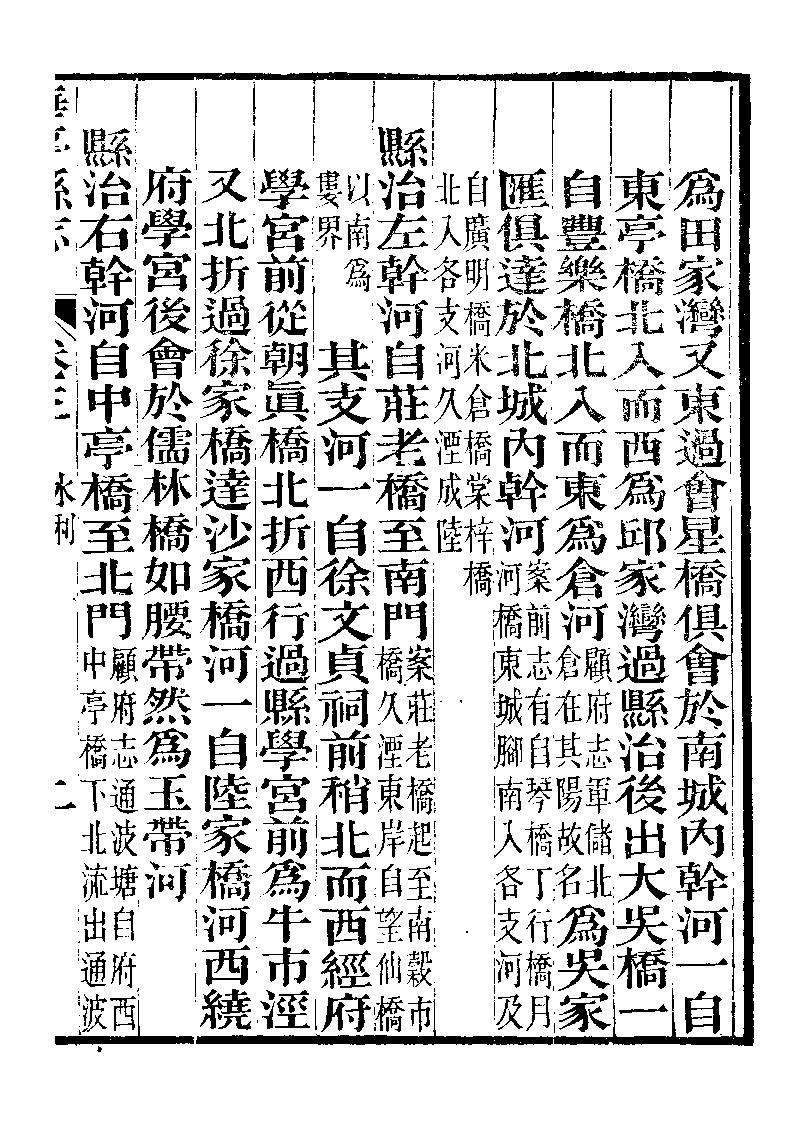 爲田家灣又東過會星橋俱會於南城內幹河一自
東亭橋北入而西爲邱家灣過縣治後出大吳橋一
自豐樂橋北入而東爲倉河
顧府志軍儲北
倉在其陽故名
爲吳家
匯俱達於北城內幹河
案前志有自琴橋丁行橋月
河橋東城腳南入各支河及
自廣明橋米倉橋棠梓橋
北入各支河久湮成陸
縣治左幹河自莊老橋至南門
案莊老橋起至南穀市
橋久湮東岸自望仙橋
以南爲
婁界
其支河一自徐文貞祠前稍北而西經府
學宮前從朝眞橋北折西行過縣學宮前爲牛市涇
又北折過徐家橋達沙家橋河一自陸家橋河西繞
府學宮後會於儒林橋如腰帶然爲玉帶河
縣治右幹河自中亭橋至北門
顧府志通波塘自府西
中亭橋下北流出通波
華亭縣志 卷三 水利 二